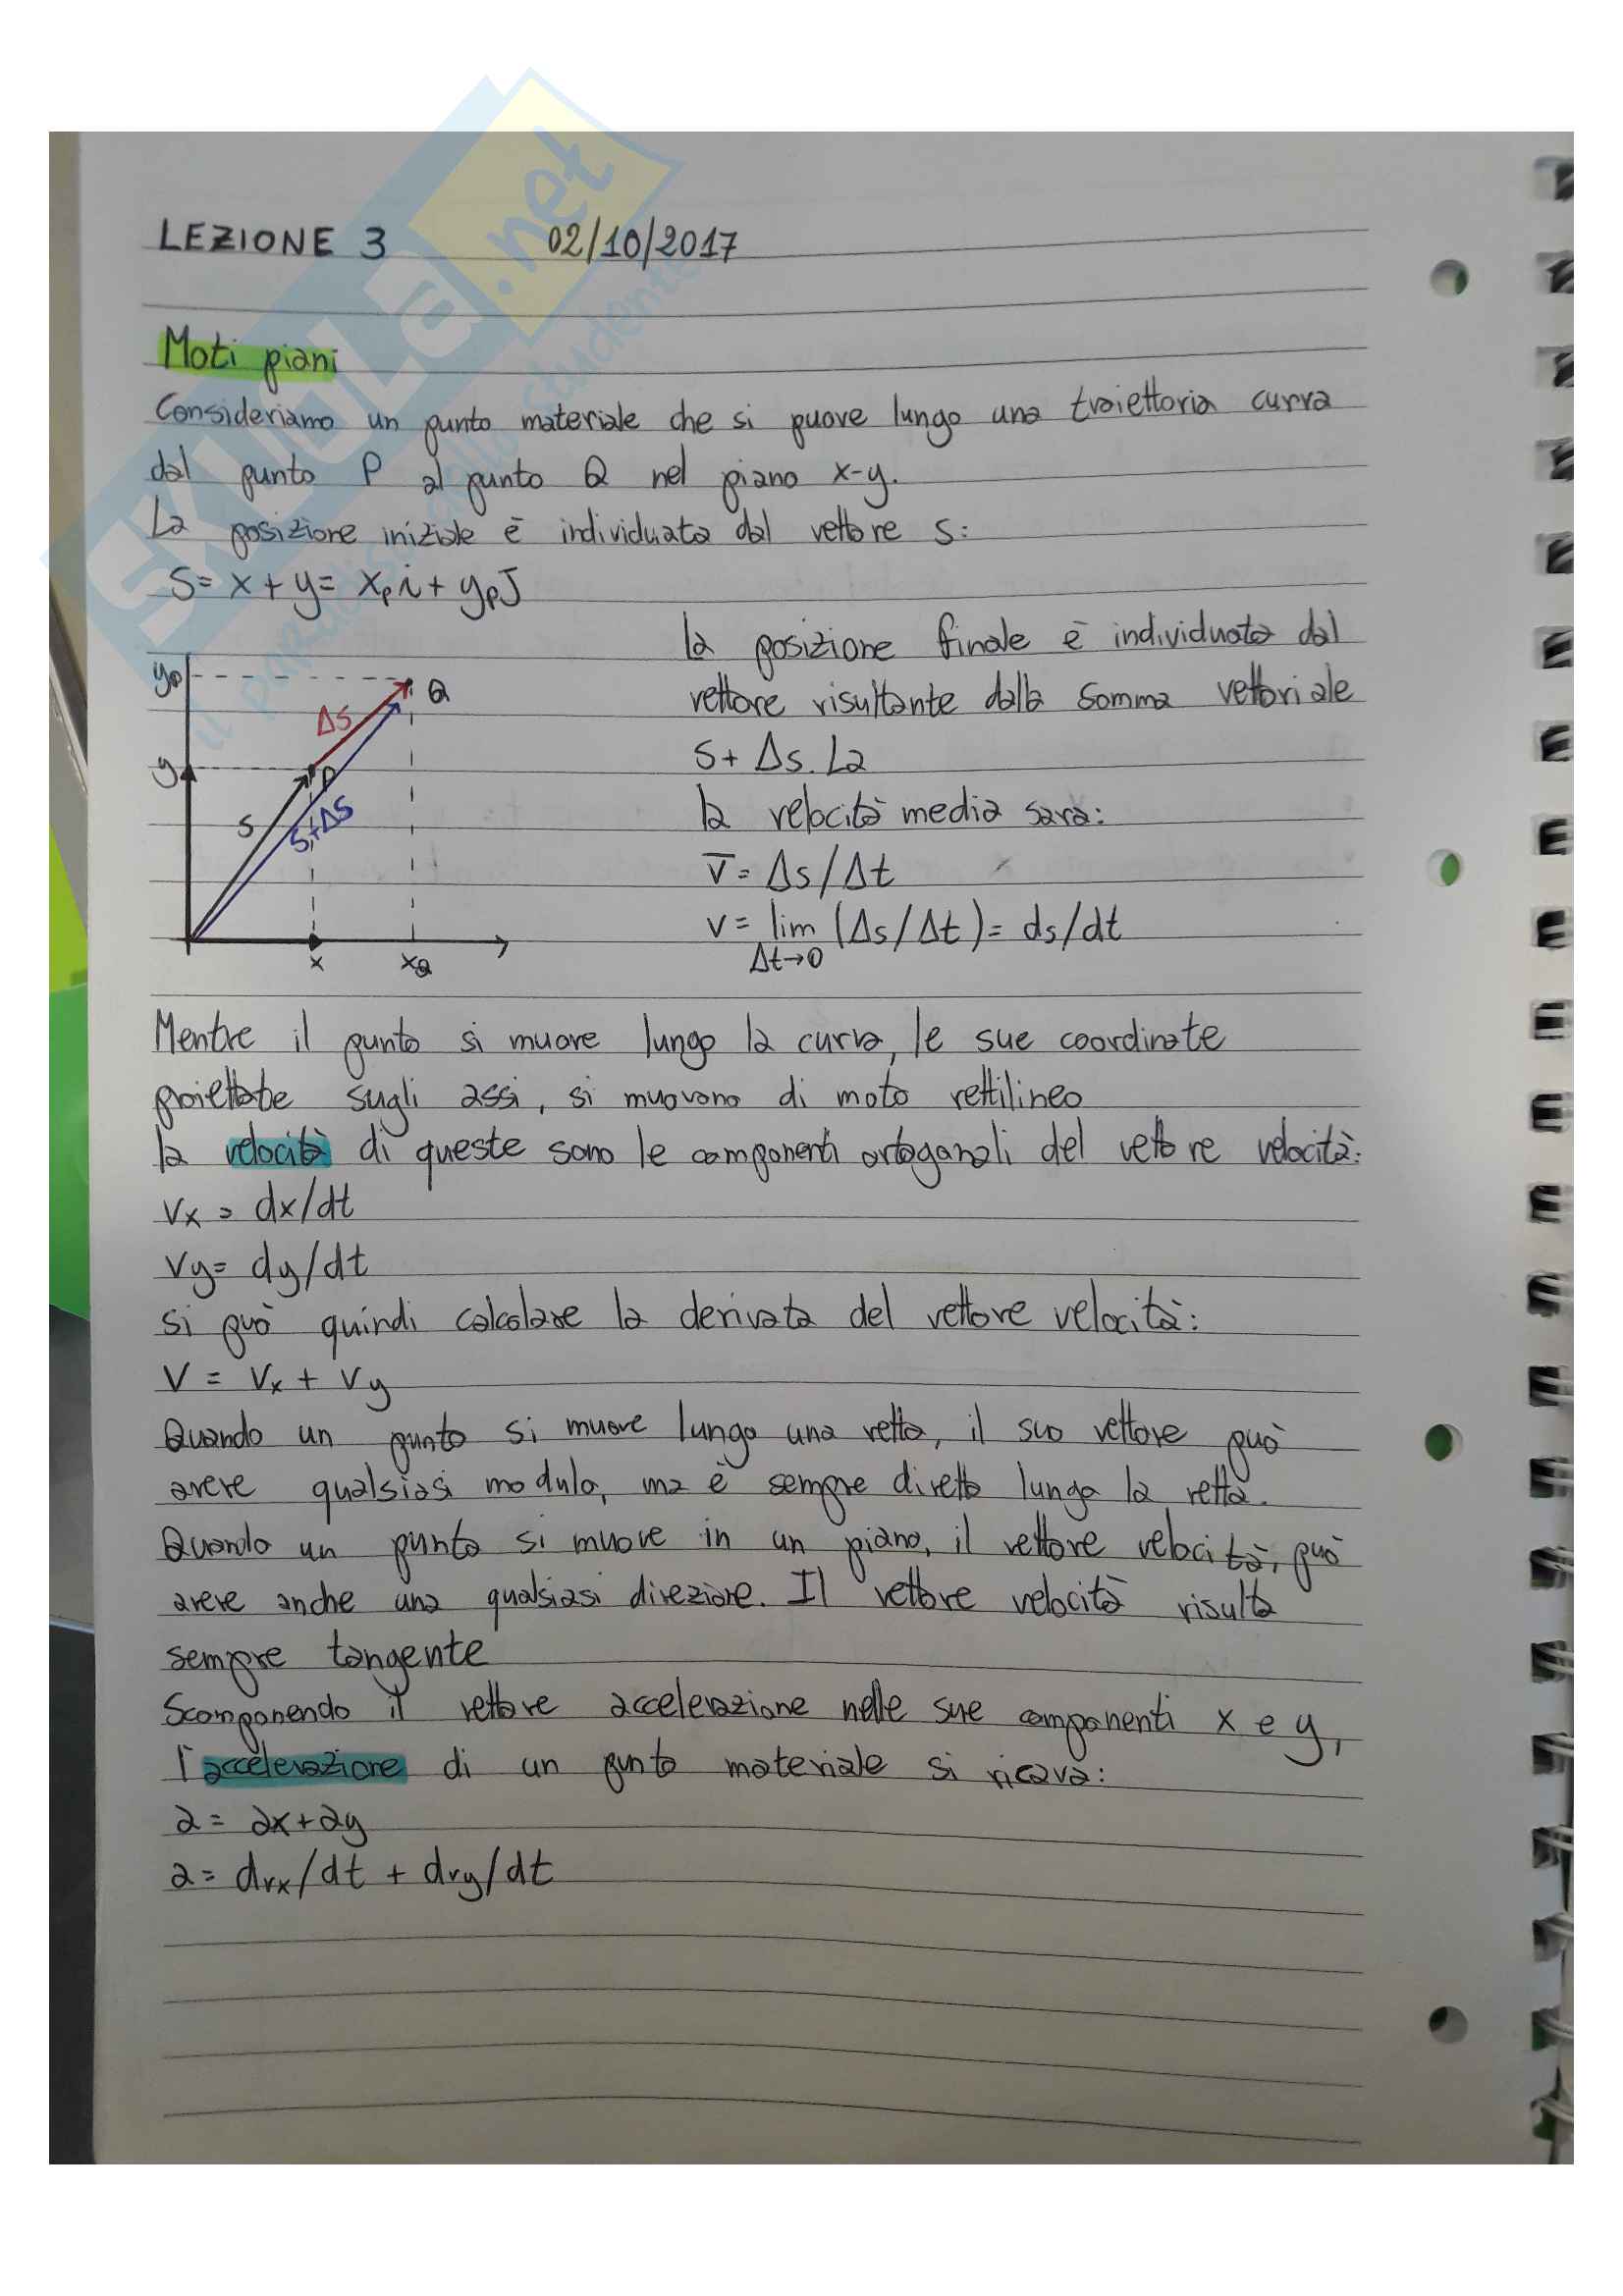 LEZIONE 3 02/10/2017
Moti piani
Consideriamo un punto materiale che si puove lungo una traiettoria curva
dal punto P al punto Q nel piano x-y.
La posizione iniziale è individuata dal vettore s:
S= x + y= xₚi + yₚJ
la posizione finale è individuata dal
vettore risultante dalla somma vettoriale
S + Δs. La
la velocità media sarà:
v̅ = Δs/Δt
v = lim (Δs/Δt) = ds/dt
Δt→0
yQ
Q
ΔS
y
P
S
S+ΔS
x
xQ
Mentre il punto si muove lungo la curva, le sue coordinate
proiettate sugli assi, si muovono di moto rettilineo
la velocità di queste sono le componenti ortoganali del vettore velocità:
vx = dx/dt
vy= dy/dt
si può quindi calcolare la derivata del vettore velocità:
V = Vx + Vy
Quando un punto si muove lungo una retta, il suo vettore può
avere qualsiasi modulo, ma è sempre diretto lungo la retta.
Quando un punto si muove in un piano, il vettore velocità, può
avere anche una qualsiasi direzione. Il vettore velocità risulta
sempre tangente
Scomponendo il vettore accelerazione nelle sue componenti x e y,
l'accelerazione di un punto materiale si ricava:
a = ax+ay
a = dvx/dt + dvy/dt
SKUOLA.net
il paradiso dello studente